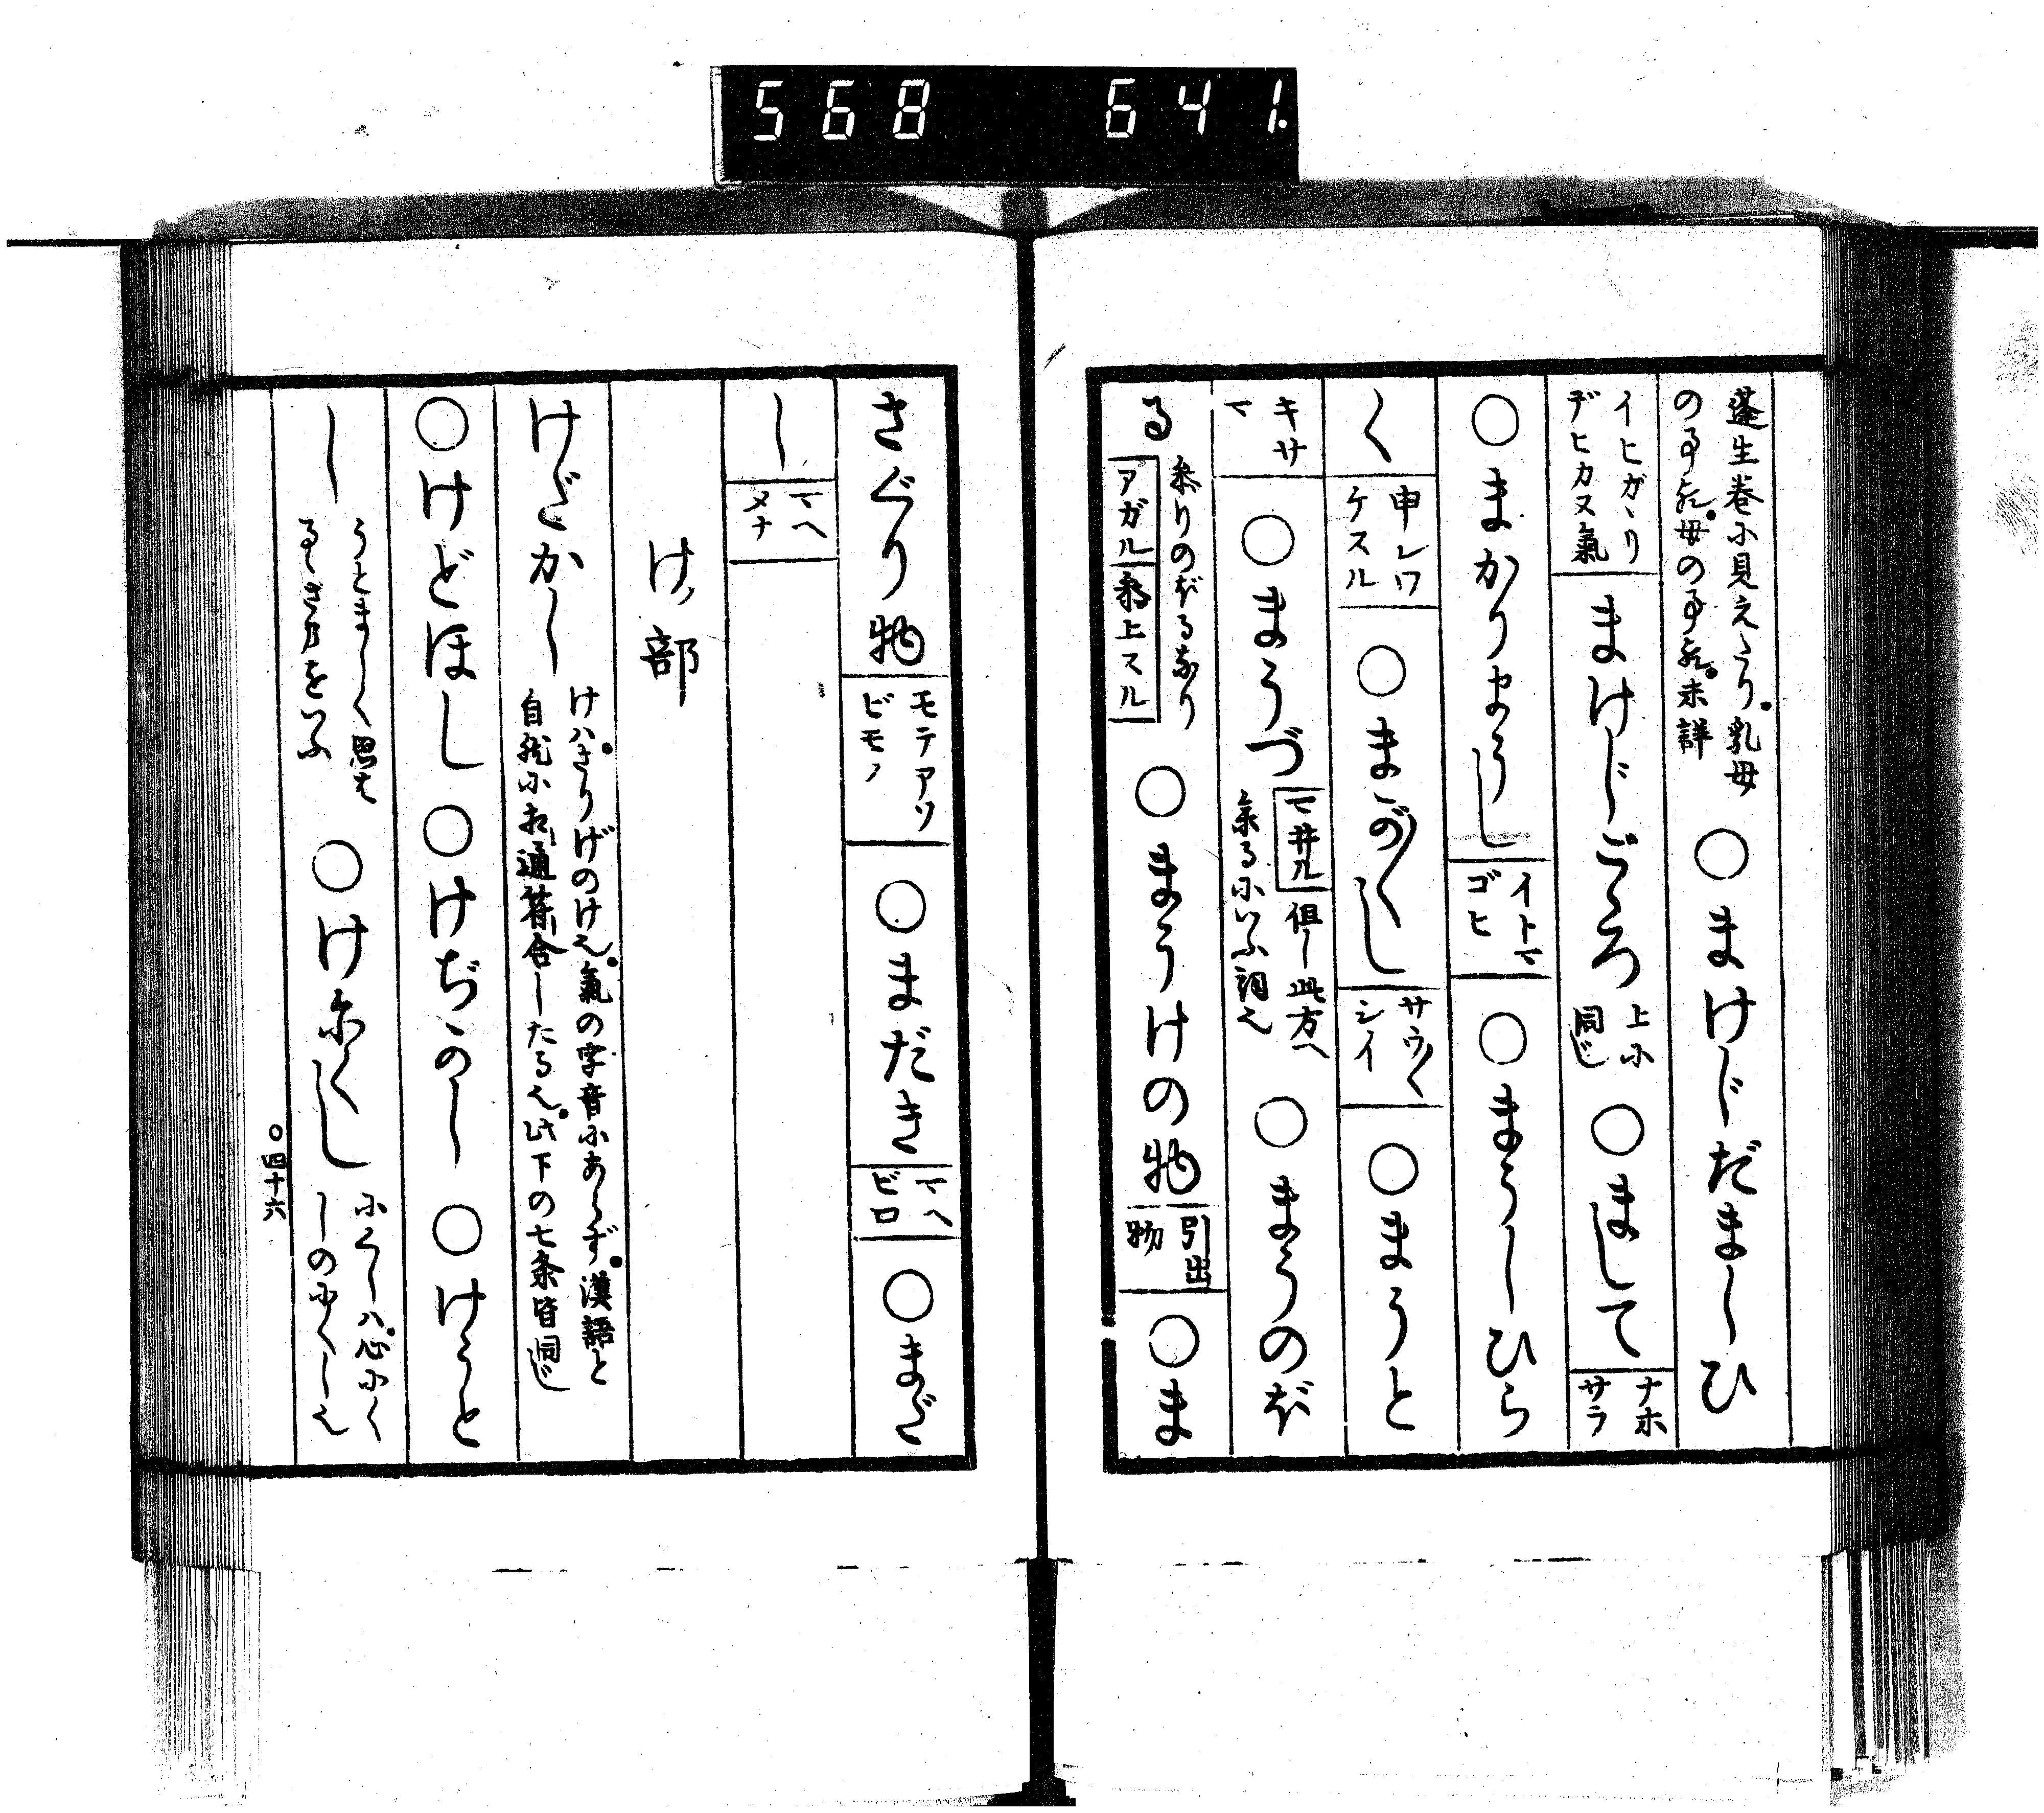 568 641
蓬生巻に見えたり。乳母
の子歟。母の子歟。未詳
○まけじだましひ
イヒガヽリ
ヂヒカヌ氣
まけじごゝろ
上に
同じ
○まして
ナホ
サラ
○まかりまうし
イトマ
ゴヒ
○まうしひら
く
申シワ
ケスル
○まが〳〵し
サウ〴〵
シイ
○まうと
キサ
マ
○まうづ
マ井ル
但し此方へ
来るにいふ詞也
○まうのぼ
る
参りのぼるなり
アガル
参上スル
○まうけの物
引出
物
○ま
さぐり物
モテアソ
ビモノ
○まだき
マヘ
ビロ
○まど
し
マヘ
メナ
けノ部
けだかし
けハさりげのけ也。氣の字音にあらず。漢語と
自然に相通符合したる也。此下の七条皆同じ
○けどほし
○けぢかし
○けうと
し
うとましく思は
るゝさまをいふ
○けにくし
にくしハ。心にく
しのにくし也
○四十六